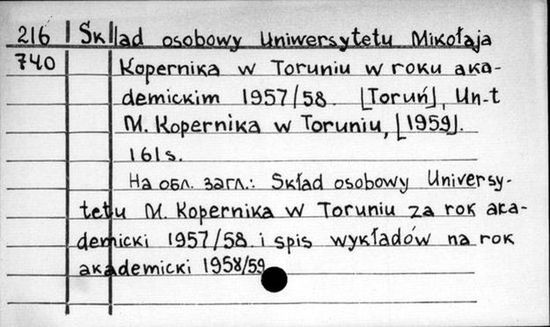 216 Skład osobowy Uniwersytetu Mikołaja
740 Kopernika w Toruniu w roku aka-
demickim 1957/58. [Toruń], Un-t
M. Kopernika w Toruniu, [1959].
161 s.
На обл. загл.: Skład osobowy Universy-
tetu M. Kopernika w Toruniu za rok aka-
demicki 1957/58 i spis wykładów na rok
akademicki 1958/59